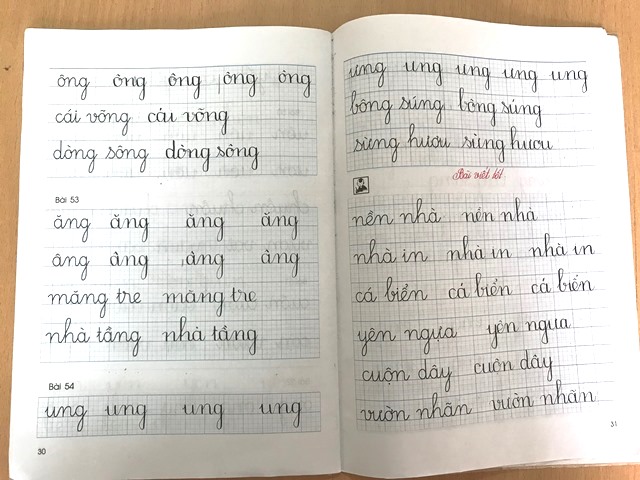 ông ông ông ông ông
cái võng cái võng
dòng sông dòng sông
Bài 53
ăng ăng ăng ăng
âng âng âng âng
măng tre măng tre
nhà tầng nhà tầng
Bài 54
ung ung ung ung
30
ưng ưng ưng ưng ưng
bông súng bông súng
sừng hươu sừng hươu
Bài viết tốt
nền nhà nền nhà
nhà in nhà in nhà in
cá biển cá biển cá biển
yên ngựa yên ngựa
cuộn dây cuộn dây
vườn nhãn vườn nhãn
31